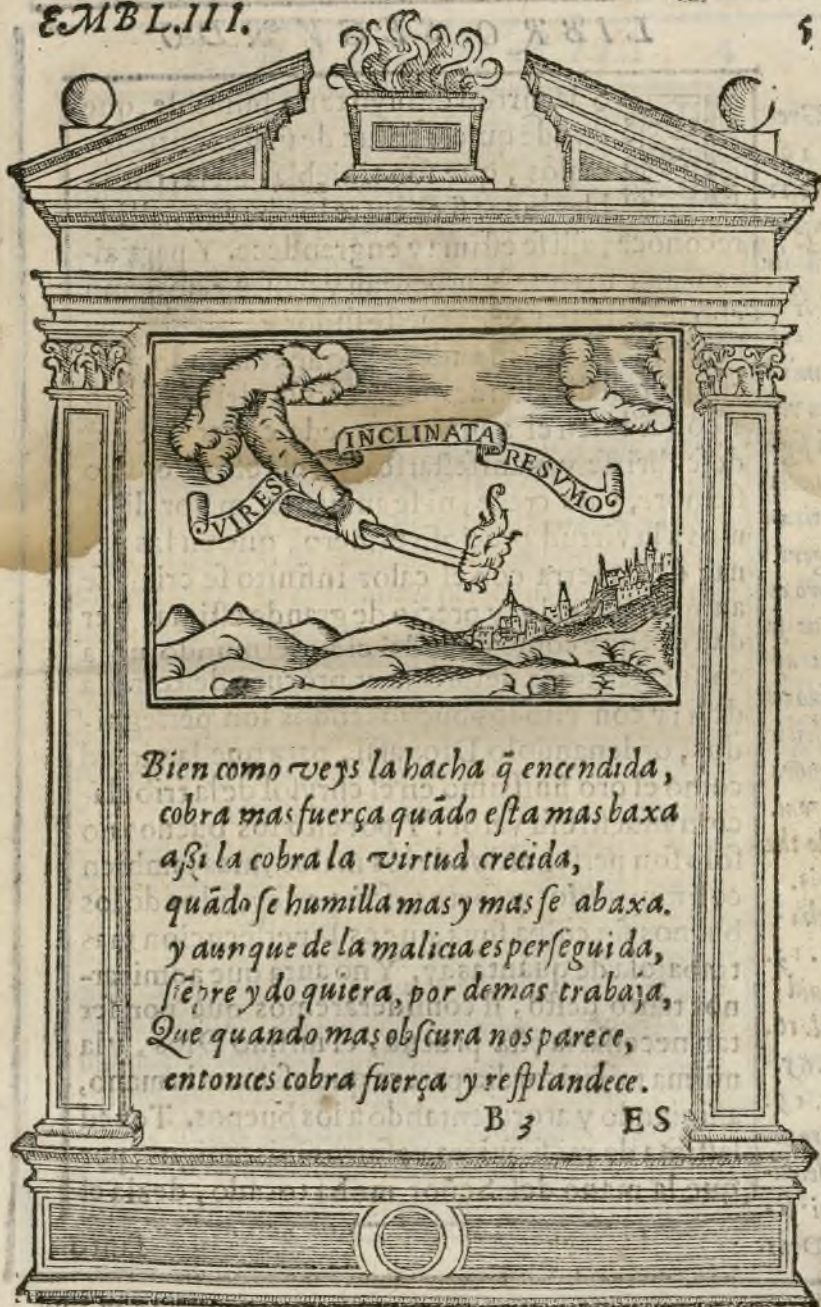 EMBL.III. 5
VIRES INCLINATA RESVMO
Bien como veys la hacha q̃ encendida,
cobra mas fuerça quãdo esta mas baxa
assi la cobra la virtud crecida,
quãdo se humilla mas y mas se abaxa.
y aunque de la malicia es perseguida,
siẽpre y do quiera, por demas trabaja,
Que quando mas obscura nos parece,
entonces cobra fuerça y resplandece.
B 3 ES